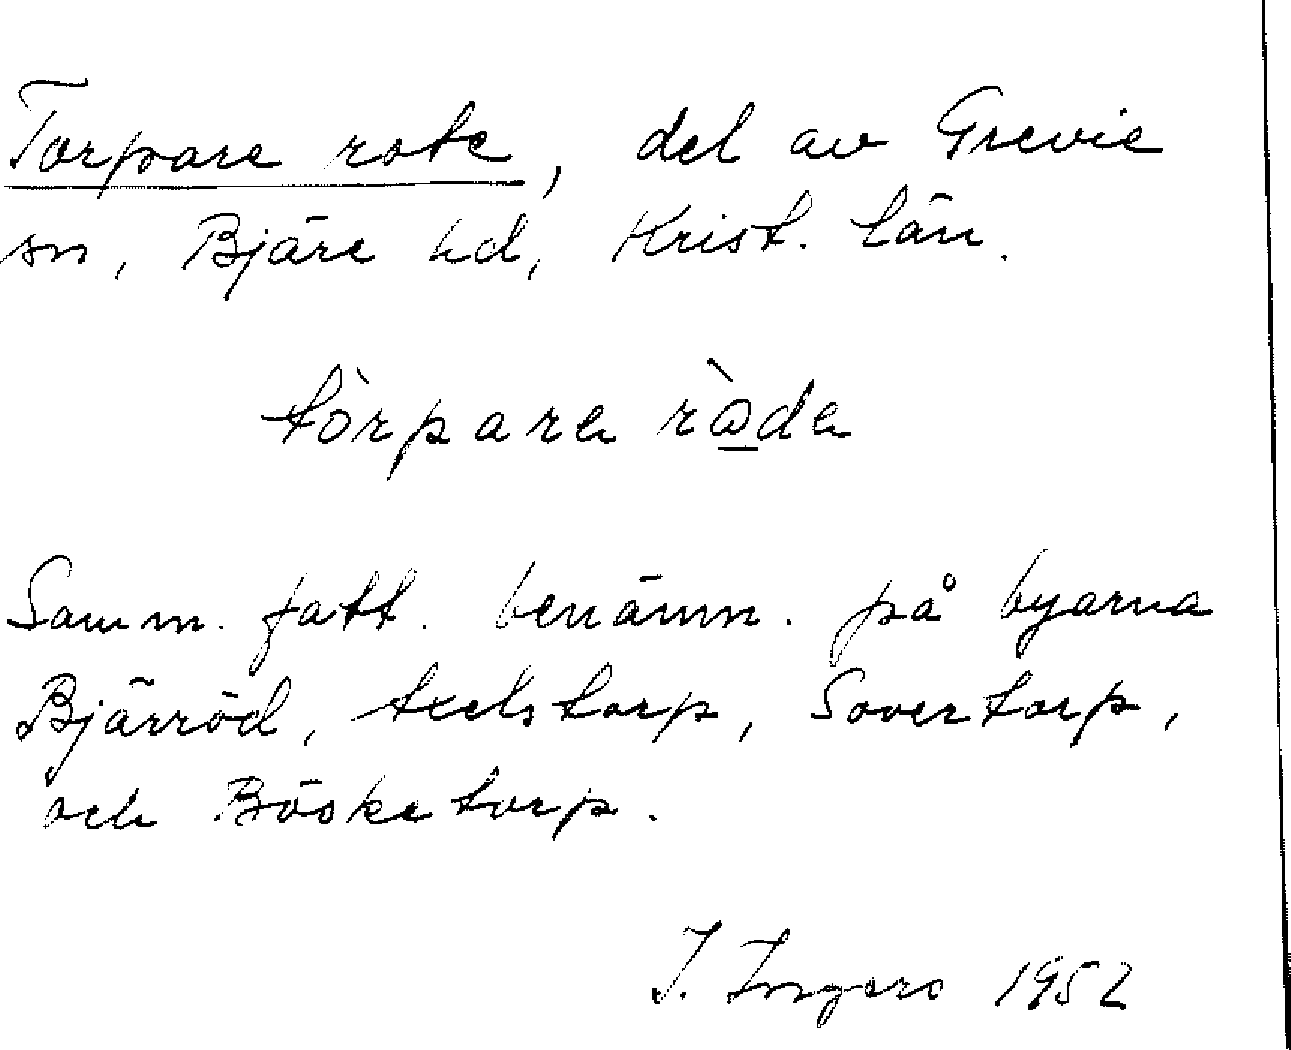 Torpare rote, del av Grevie
sn, Bjäre hd, Krist. län.
tòrpara ràda
Samm. fatt. benämn. på byarna
Bjärröd, Axelstorp, Sovertorp,
och Böske torp.
I. Ingers 1952